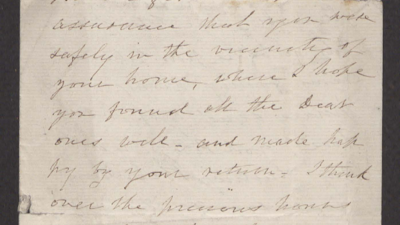 assurance that you were
safely in the vicinity of
your home, where I hope
you found all the Dear
ones well - and made hap
py by your return - I
over the precious hours